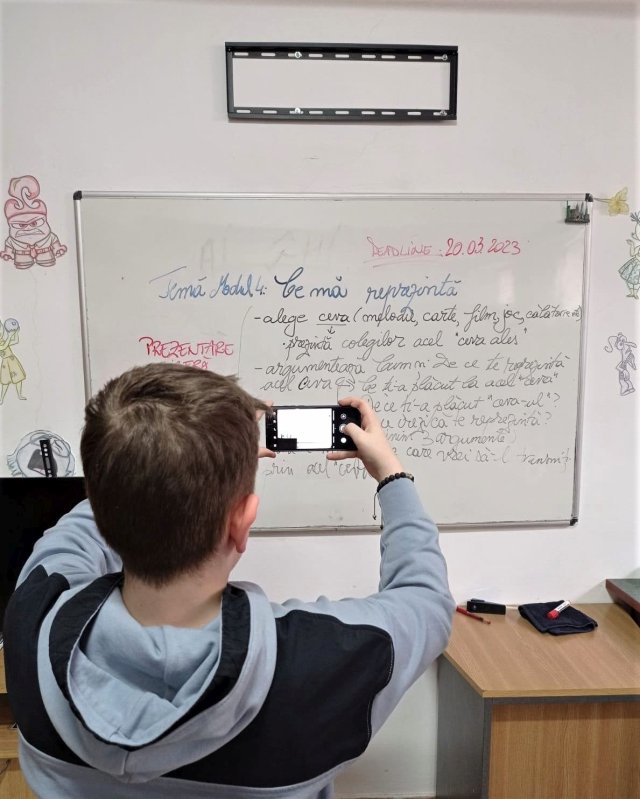 DEADLINE: 20.03.2023
Temă Modul 4: Ce mă reprezintă
-alege ceva (melodii, carte, film, joc, călătorie etc)
PREZENTARE
prezintă colegilor acel "ceva ales"
-argumentarea De ce te reprezintă
acel ceva ce ți-a plăcut la acel "ceva"
De ce ți-a plăcut "ceva-ul"?
crezi că te reprezintă?
min 3 argumente)
prin acel care vrei să-l transmiți